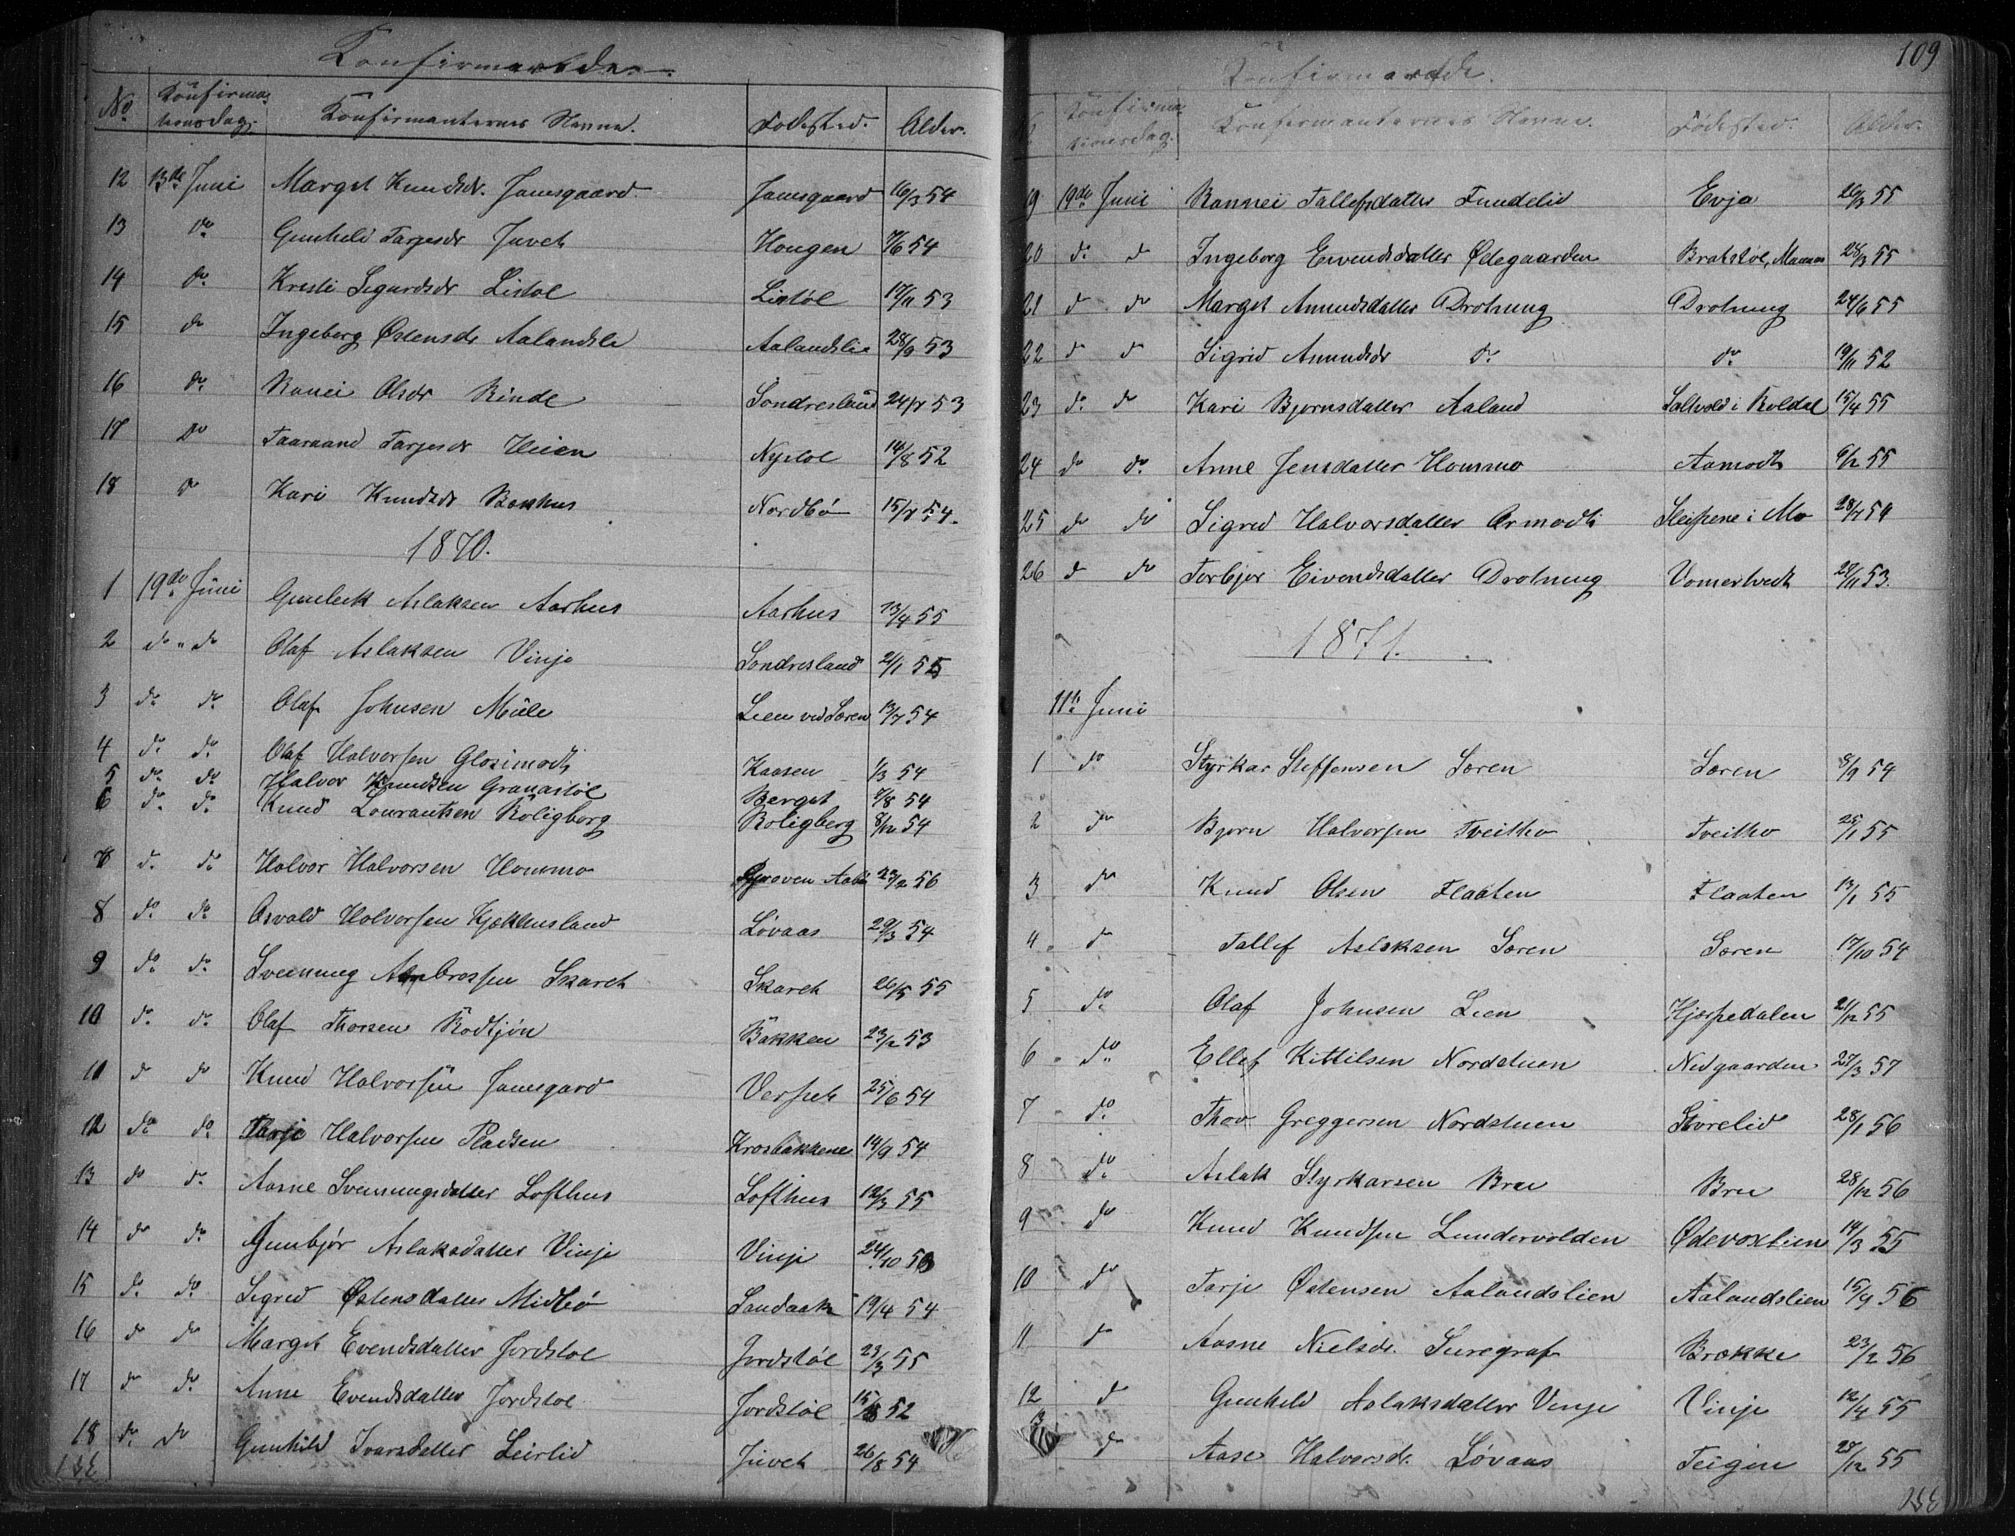 Konfirmerede.
No. Konfirmationsdag. Konfirmanternes Navne. Fødested. Alder.
12 13de Juni Margit Knudsdr. Jamsgaard Jamsgaard 16/3 54
13 do Gunhild Tarjesdr Juvet Hougen 7/6 54
14 do Kristi Sigurdsdr Listøl Listøl 17/11 53
15 do Ingeborg Østensdr Aalandsli Aalandslie 28/9 53
16 do Ranei Olsdr Rinde Sondresland 24/7 53
17 do Taaraand Tarjesdr Heien Nystøl 14/8 52
18 do Kari Knudsdr Bækhus Nordbø 15/7 54.
1870.
1 19de Juni Gunleik Aslaksen Aarhus Aarhus 13/4 55
2 do " do Olaf Aslaksen Vinje Sondresland 21/1 55
3 do do Olaf Johnsen Mule Lien ved Særen 13/7 54
4 do do Olaf Halvorsen Glosimodt Kaasen 1/3 54
5 do do Halvor Knudsen Granastøl Berget 7/8 54
6 do do Knud Lourantsen Roligberg Roligberg 8/12 54
7 d. do Halvor Halvorsen Hommo Gjroven Aabø 23/2 56
8 do do Asvald Halvorsen Kjækhusland Løvaas 29/3 54
9 do do Sveinung Ambrossen Skaret Skaret 26/5 55
10 do do Olaf Thorsen Rodtjøn Bakken 23/2 53
11 d do Knud Halvorsen Jamsgard Versset 25/6 54
12 do do Tarje Halvorsen Pladsen Krosbakkene 14/9 54
13 do do Aasne Sveinungsdatter Lofthus Lofthus 12/3 55
14 do do Gunbjør Aslaksdatter Vinje Vinje 24/10 53
15 do do Sigrid Østensdatter Midbø Sandaak 19/4 54
16 do do Margit Evendsdatter Jordstøl Jordstøl 23/3 55
17 do do Anne Evendsdatter Jordstøl Jordstøl 52
18 do do Gunhild Ivarsdatter Leirlid Juvet 26/8 54
109
Konfirmerede.
Konfirmationsdag. Konfirmanternes Navne. Fødested. Alder.
19 19de Juni Rannei Tallefsdatter Fundelid Evja 26/3 55
20 do d Ingeborg Eivendsdatter Ødegaarden Bratstøl, Maanos 28/3 55
21 d do Margit Amundsdatter Drotning Drotning 24/6 55
22 d d Sigrid Amundsdr do do 19/11 52
23 do d Kari Bjørnsdatter Aaland Saltvold i Roldal 15/4 55
24 do do Anne Jensdatter Hommo Aamodt 6/2 55
25 do do Sigrid Halvorsdatter Armodt Sleipene i Mo 28/7 54
26 d do Torbjør Eivendsdatter Drotning Vomestvedt 22/11 53.
1871.
11te Juni
1 do Styrkar Steffensen Særen Særen 8/9 54
2 do Bjørn Halvorsen Tveitho Tveitho 25/1 55
3 do Knud Olsen Flaaten Flaaten 13/1 55
4 d Tallef Aslaksen Særen Særen 17/10 54
5 do Olaf Johnsen Lien Hjærpedalen 21/12 55
6 do Ellef Kittilsen Nordstuen Nedgaarden 27/3 57
7 do Thov Greggersen Nordstuen Storelid 28/1 56
8 do Aslak Styrkarsen Bru Bru 28/12 56
9 do Knud Knudsen Lundervolden Ødevoxlien 14/3 55
10 do Tarje Østensen Aalandslien Aalandslien 15/9 56
11 d Aasne Nielsdr. Suregraf Brokke 23/2 56
12 d Gunhild Aslaksdatter Vinje Vinje 12/4 55
13 do Aase Halvorsdr. Løvaas Teigen 28/12 55